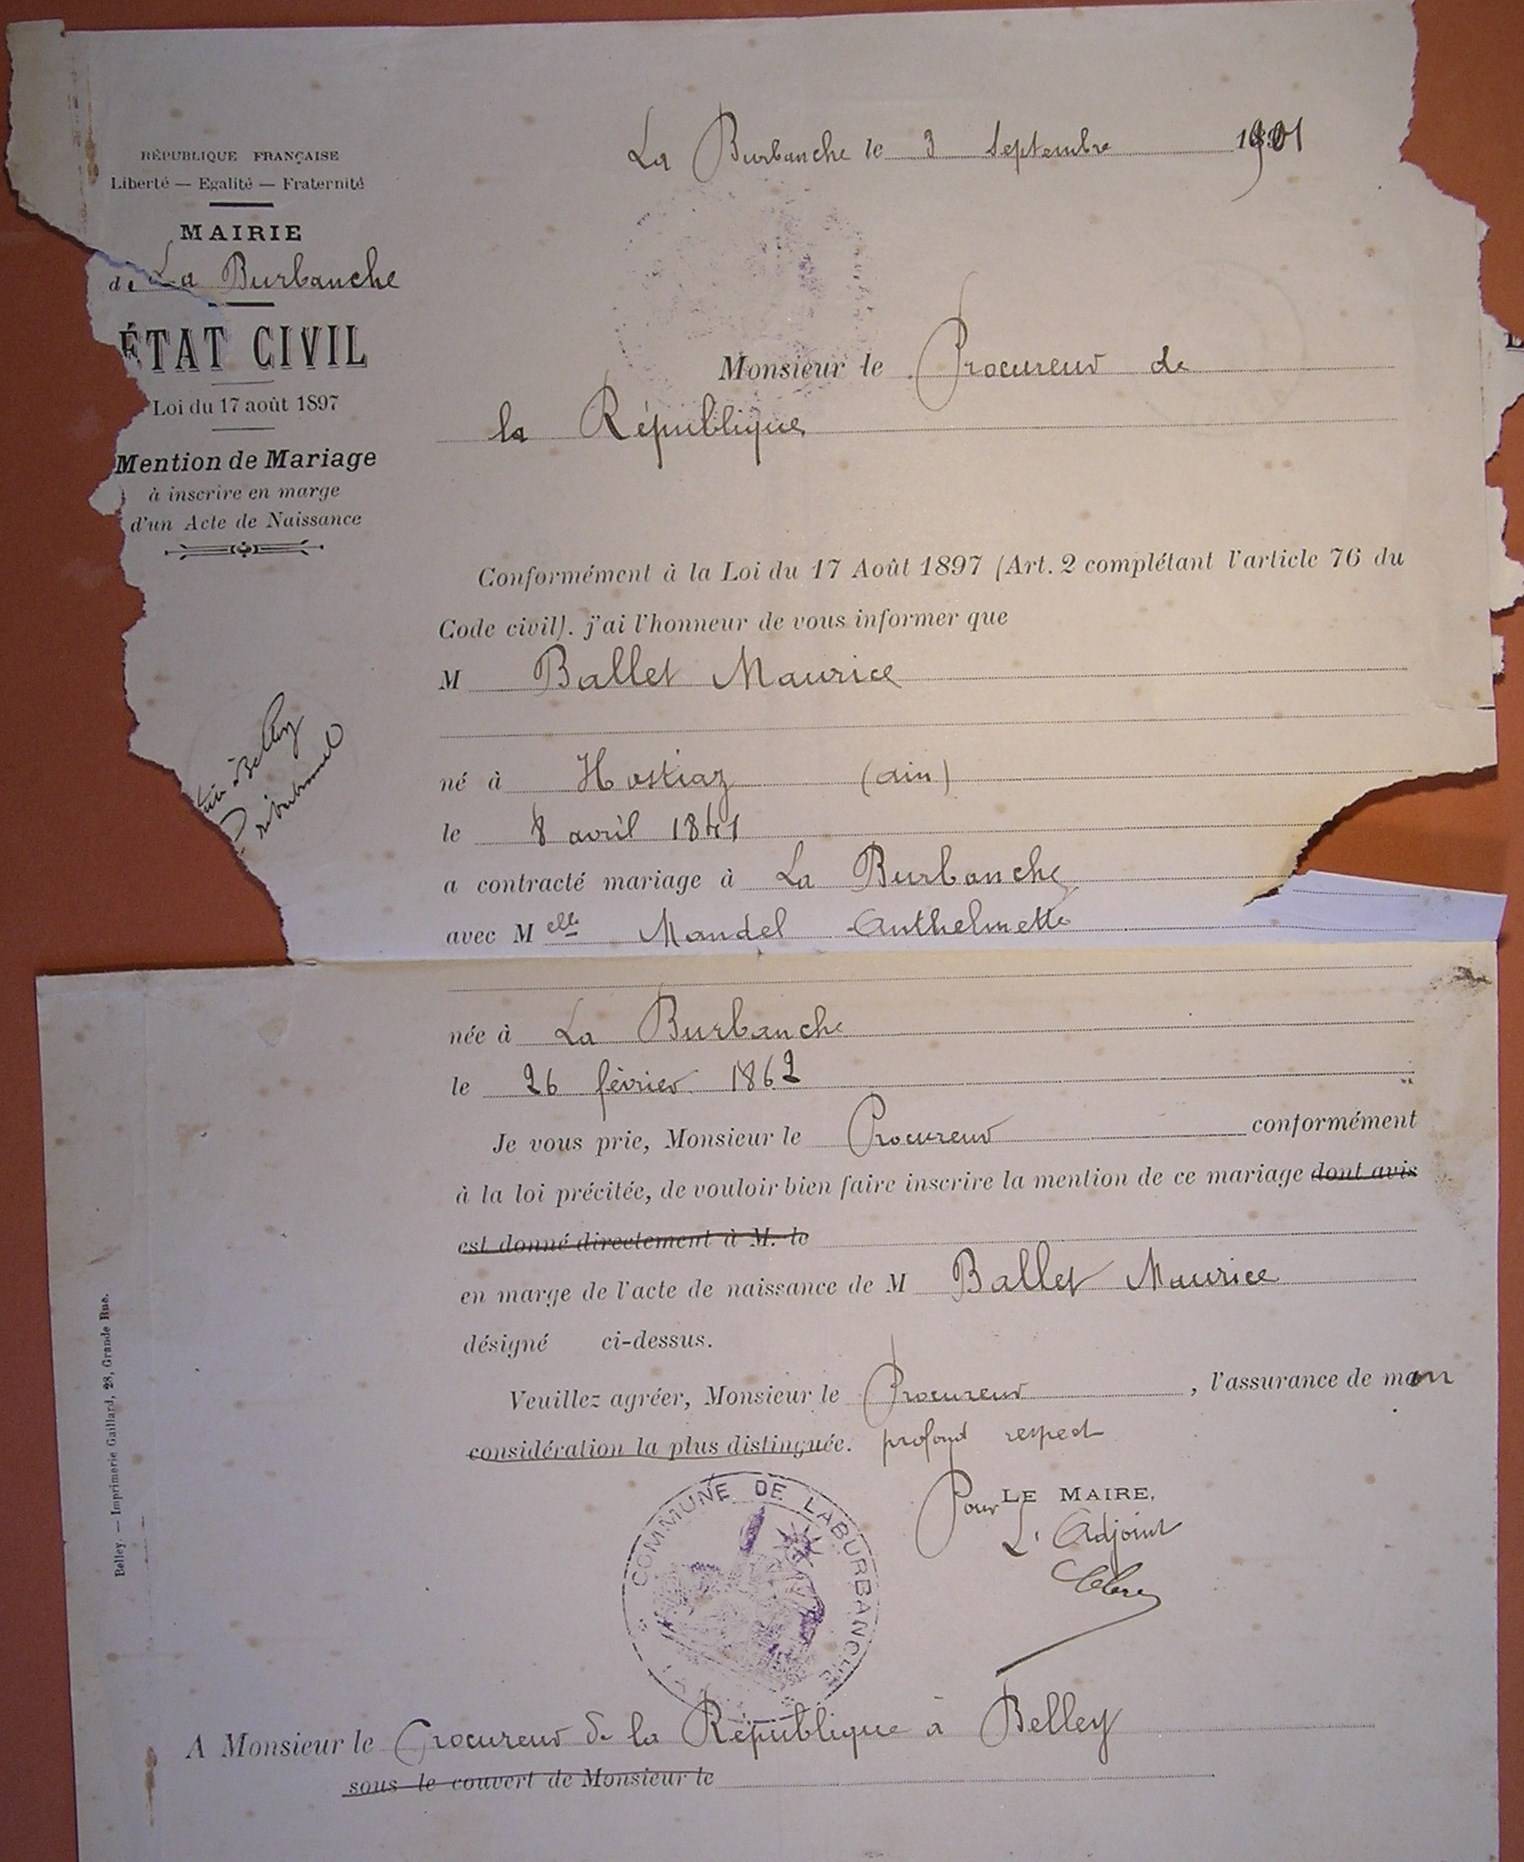 La Burbanche le 3 Septembre 1901
RÉPUBLIQUE FRANÇAISE
Liberté — Egalité — Fraternité
MAIRIE
de La Burbanche
ÉTAT CIVIL
Loi du 17 août 1897
Mention de Mariage
à inscrire en marge
d'un Acte de Naissance
Monsieur le Procureur de
la République
Conformément à la Loi du 17 Août 1897 (Art. 2 complétant l'article 76 du
Code civil). j'ai l'honneur de vous informer que
M Ballet Maurice
né à Hostiaz (ain)
le 8 avril 1841
a contracté mariage à La Burbanche
avec M elle Mandel Anthelmette
née à La Burbanche
le 26 février 1862
Je vous prie, Monsieur le Procureur conformément
à la loi précitée, de vouloir bien faire inscrire la mention de ce mariage dont avis
est donné directement à M. le
en marge de l'acte de naissance de M Ballet Maurice
désigné ci-dessus.
Veuillez agréer, Monsieur le Procureur, l'assurance de mon
considération la plus distinguée. profond respect
Pour LE MAIRE,
L'Adjoint
COMMUNE DE LABURBANCHE
A Monsieur le Procureur de la République à Belley
sous le couvert de Monsieur le
Belley. — Imprimerie Gaillard, 28, Grande Rue.
Belley
Tribunal